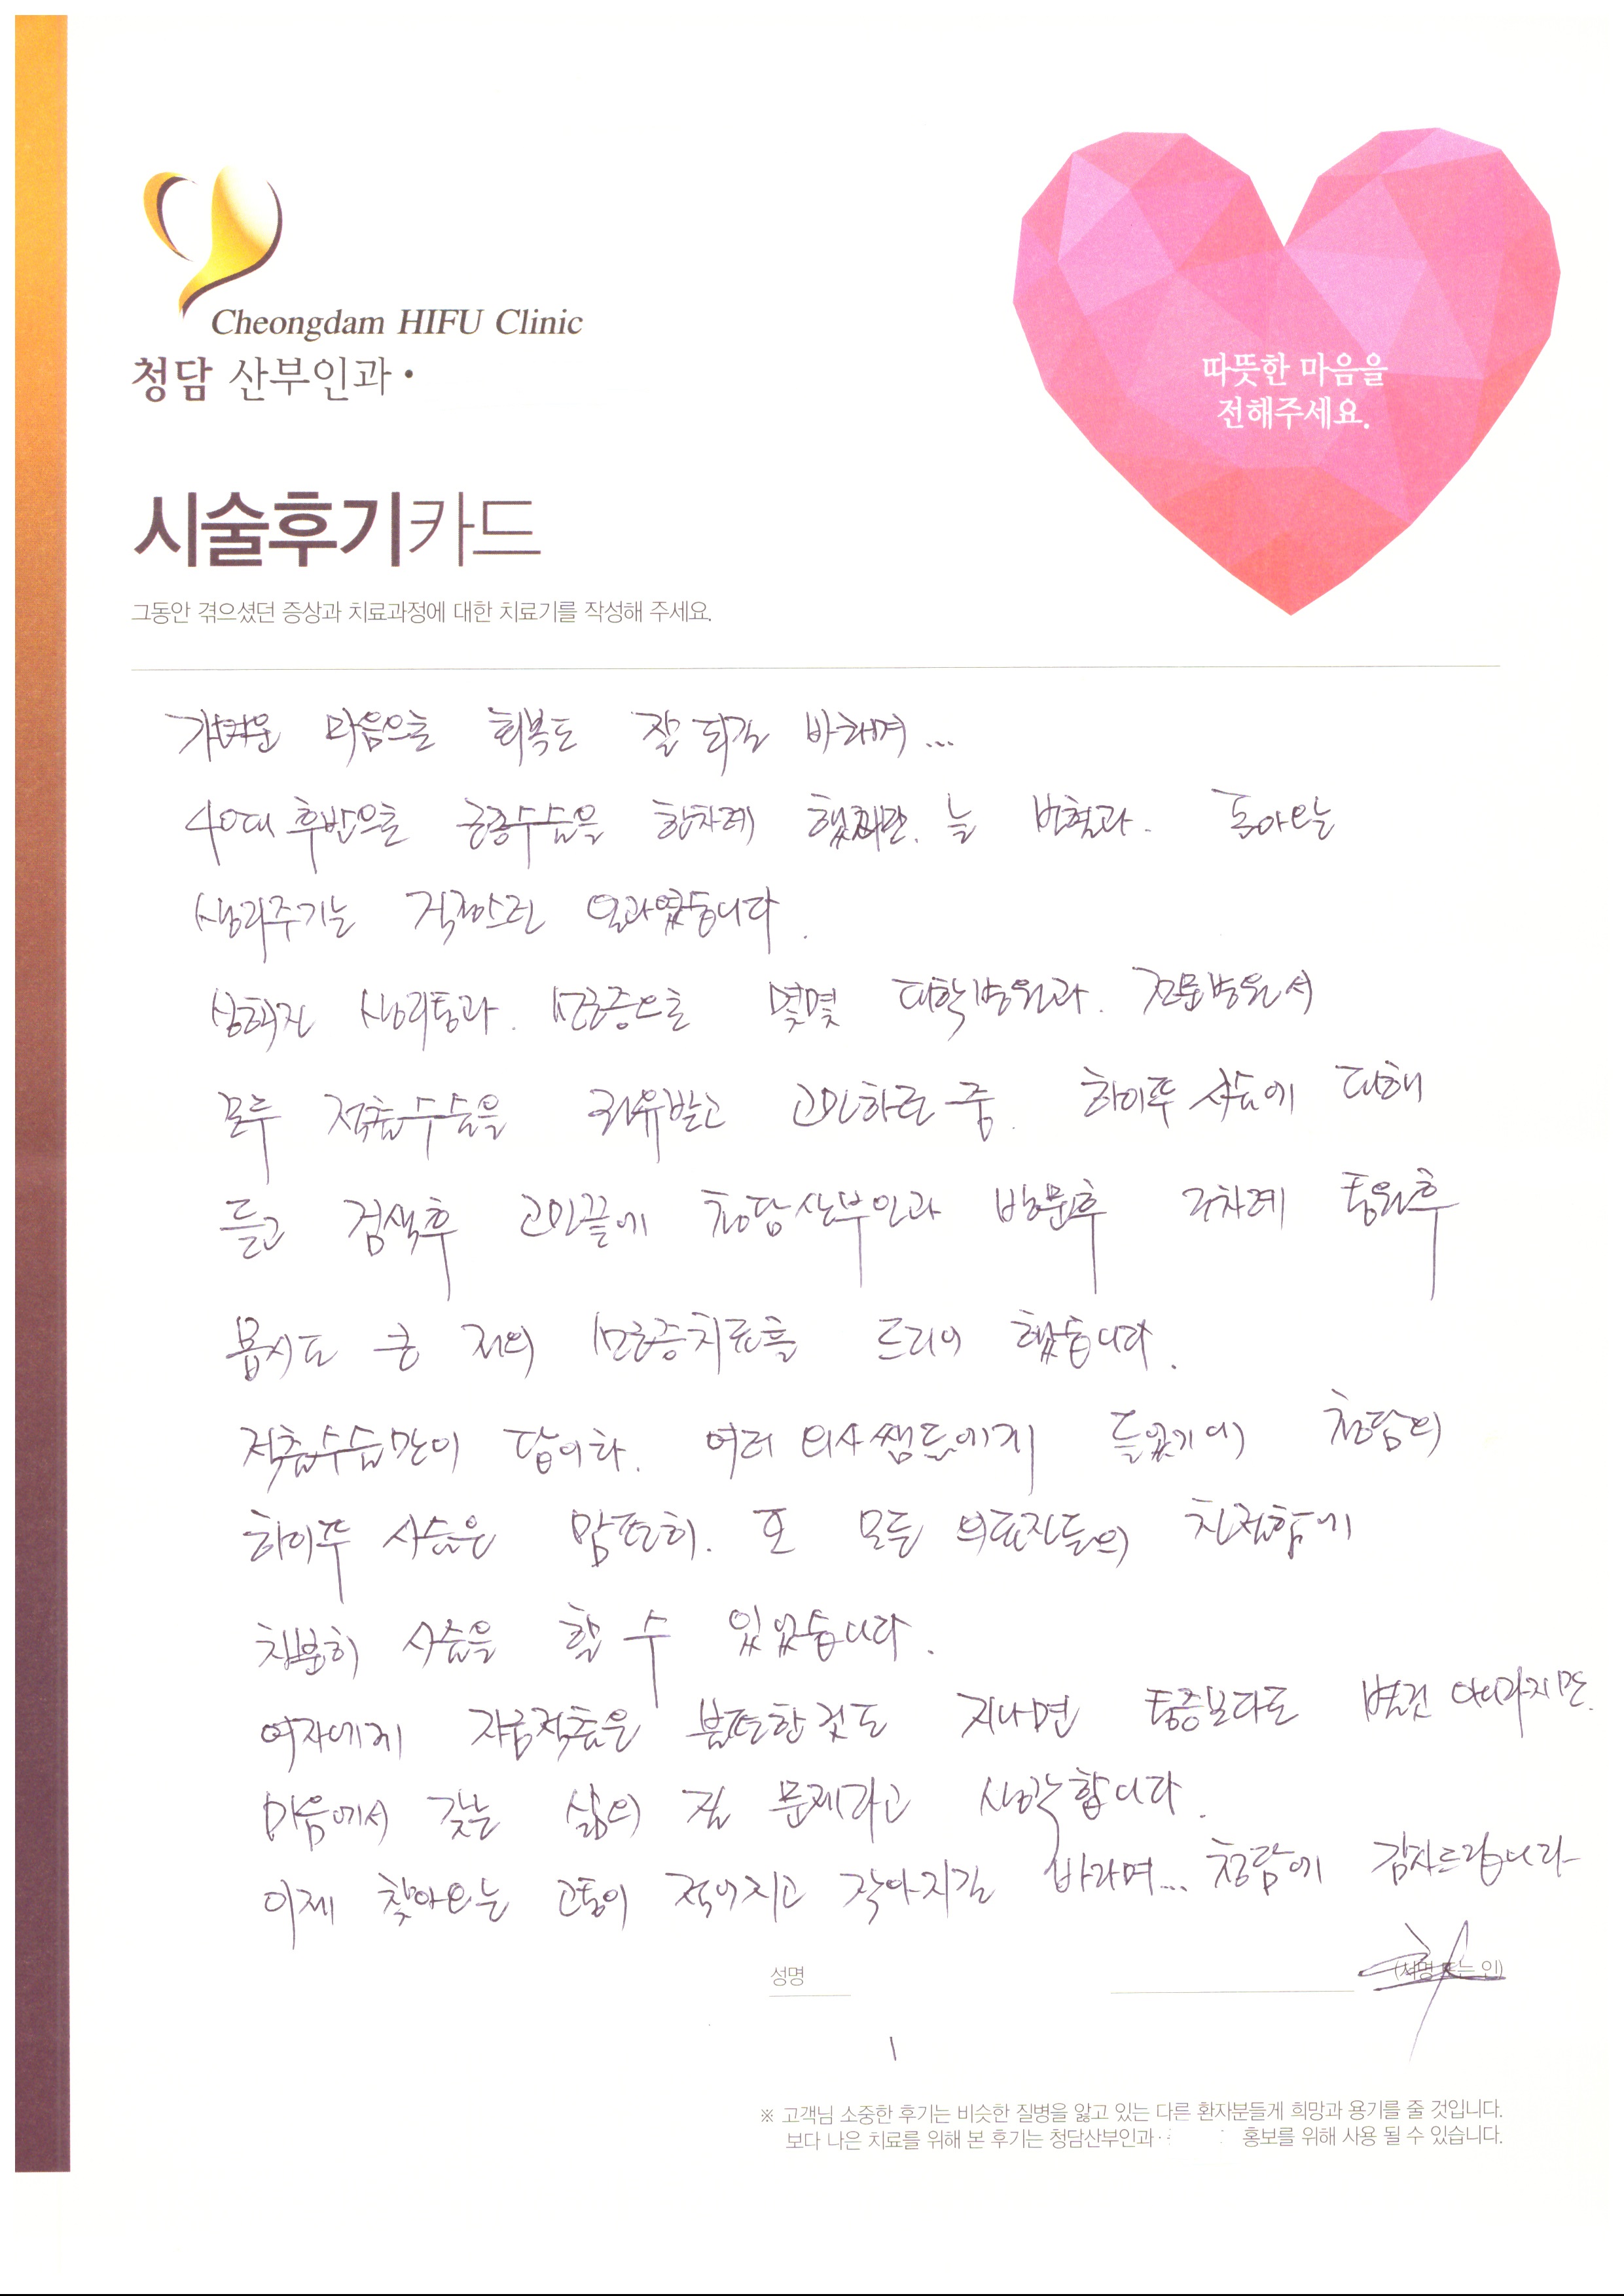 Cheongdam HIFU Clinic
청담 산부인과·
따뜻한 마음을
전해주세요.
시술후기카드
그동안 겪으셨던 증상과 치료과정에 대한 치료기를 작성해 주세요.
가벼운 마음으로 회복도 잘 되길 바래며...
40대 후반으로 근종수술을 한차례 했지만. 늘 빈혈과. 돌아오는
생리주기는 걱정스런 일과였습니다.
심해진 생리통과. 선근증으로 몇몇 대학병원과. 전문병원서
모두 적출수술을 권유받고 고민하던 중. 하이푸 시술에 대해
듣고 검색후 고민끝에 청담산부인과 방문후 2차례 통원후
몹시도 큰 저의 선근증치료를 드디어 했습니다.
적출수술만이 답이라. 여러 의사쌤들에게 들었기에 청담의
하이푸 시술은 맘편히. 또 모든 의료진들의 친절함에
차분히 시술을 할 수 있었습니다.
여자에게 자궁적출은 불편한것도 지나면 통증보다도 별것 아니라지만.
마음에서 갖는 삶의 질 문제라고 생각합니다.
이제 찾아오는 고통이 적어지고 작아지길 바라며... 청담에 감사드립니다
성명
(서명 또는 인)
※ 고객님 소중한 후기는 비슷한 질병을 앓고 있는 다른 환자분들게 희망과 용기를 줄 것입니다.
보다 나은 치료를 위해 본 후기는 청담산부인과· 홍보를 위해 사용 될 수 있습니다.